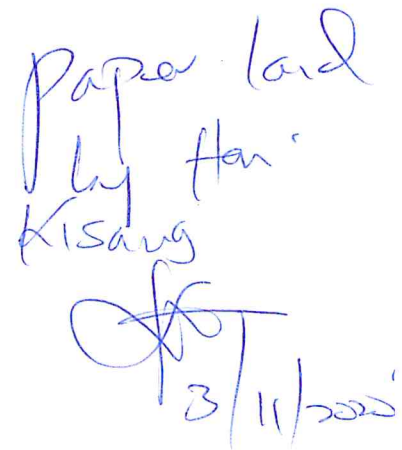 Paper laid
by Hon.
Kisang
3/11/2020